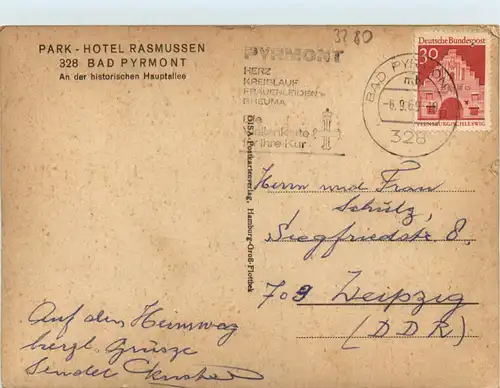 3280
PARK - HOTEL RASMUSSEN
328 BAD PYRMONT
An der historischen Hauptallee
PYRMONT
HERZ
KREISLAUF
FRAUENLEIDEN
RHEUMA
Die
für Ihre Kur
BAD PYRMONT
-6.9.69
328
Deutsche Bundespost
30
FLENSBURG/SCHLESWIG
DISA-Postkartenverlag, Hamburg-Groß-Flottbek
Herrn und Frau
Schulz,
Siegfriedstr 8,
709 Leipzig
(DDR)
Auf dem Heimweg
herzl. Grüsze
sendet